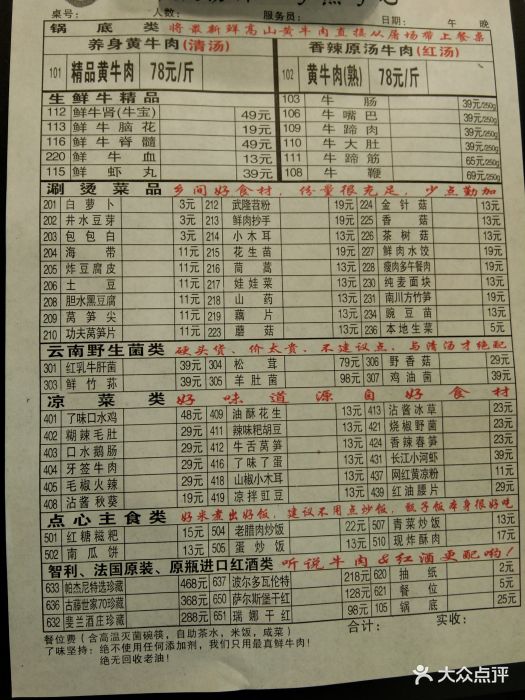 桌号： 人数： 服务员： 日期： 午 晚
锅底类 将最新鲜高山黄牛肉直接从屠场带上餐桌
养身黄牛肉(清汤) 香辣原汤牛肉(红汤)
101 精品黄牛肉 78元/斤 102 黄牛肉(熟) 78元/斤
生鲜牛精品 103 牛肠 39元/250g
112 鲜牛肾(牛宝) 49元 106 牛嘴巴 39元/250g
113 鲜牛脑花 19元 109 牛蹄肉 39元/250g
116 鲜牛脊髓 49元 110 牛大肚 39元/250g
220 鲜牛血 13元 111 牛蹄筋 65元/250g
115 鲜虾丸 39元 108 牛鞭 69元/250g
涮烫菜品 乡间好食材，份量很充足，少点勤加
201 白萝卜 3元 212 武隆苕粉 19元 224 金针菇 13元
202 井水豆芽 3元 213 鲜肉抄手 19元 225 香菇 13元
203 包包白 3元 214 小木耳 13元 226 茶树菇 13元
204 海带 11元 215 花生苗 19元 227 鲜肉水饺 19元
205 炸豆腐皮 11元 216 茼蒿 13元 228 瘦肉多午餐肉 19元
206 土豆 11元 217 娃娃菜 13元 230 纯麦面块 13元
208 胆水黑豆腐 11元 218 山药 13元 231 南川方竹笋 19元
209 莴笋尖 11元 219 藕片 13元 234 豌豆苗 13元
210 功夫莴笋片 11元 223 蘑菇 13元 236 本地生菜 5元
云南野生菌类 硬头货、价太贵、不建议点，与清汤才绝配
301 红乳牛肝菌 39元 304 松茸 79元 306 野香菇 29元
303 鲜竹荪 39元 305 羊肚菌 98元 307 鸡油菌 39元
凉菜类 好味道源自好食材
401 了味口水鸡 48元 409 油酥花生 13元 413 沾酱冰草 23元
402 糊辣毛肚 29元 411 辣味粑胡豆 13元 421 烧椒野菌 23元
403 口水鹅肠 29元 412 牛舌莴笋 13元 424 香辣春笋 23元
404 牙签牛肉 29元 416 了味了蛋 13元 431 长江小河虾 39元
405 毛椒火辣 29元 418 山椒小木耳 13元 437 网红黄凉粉 11元
408 沾酱秋葵 19元 419 凉拌豇豆 13元 439 红油腰片 29元
点心主食类 好米煮出好饭，建议不用点炒饭，甑子饭本身很好吃
501 红糖糍粑 15元 504 老腊肉炒饭 22元 507 青菜炒饭 13元
502 南瓜饼 13元 505 蛋炒饭 13元 510 现炸酥肉 17元
智利、法国原装、原瓶进口红酒类 听说牛肉&红酒更配哟！
633 帕杰尼特选珍藏 468元 637 波尔多瓦伦特 218元 620 抽纸 2元
636 古藤世家70珍藏 368元 650 萨尔斯堡干红 128元 621 餐位 5元
632 斐兰酒庄珍藏 288元 651 瑞娜干红 98元 105 锅底 25元
餐位费（含高温灭菌碗筷，自助茶水，米饭，咸菜） 合计： 实收：
了味坚持：绝不使用任何添加剂，我们只用最真鲜牛肉！
绝无回收老油！
大众点评